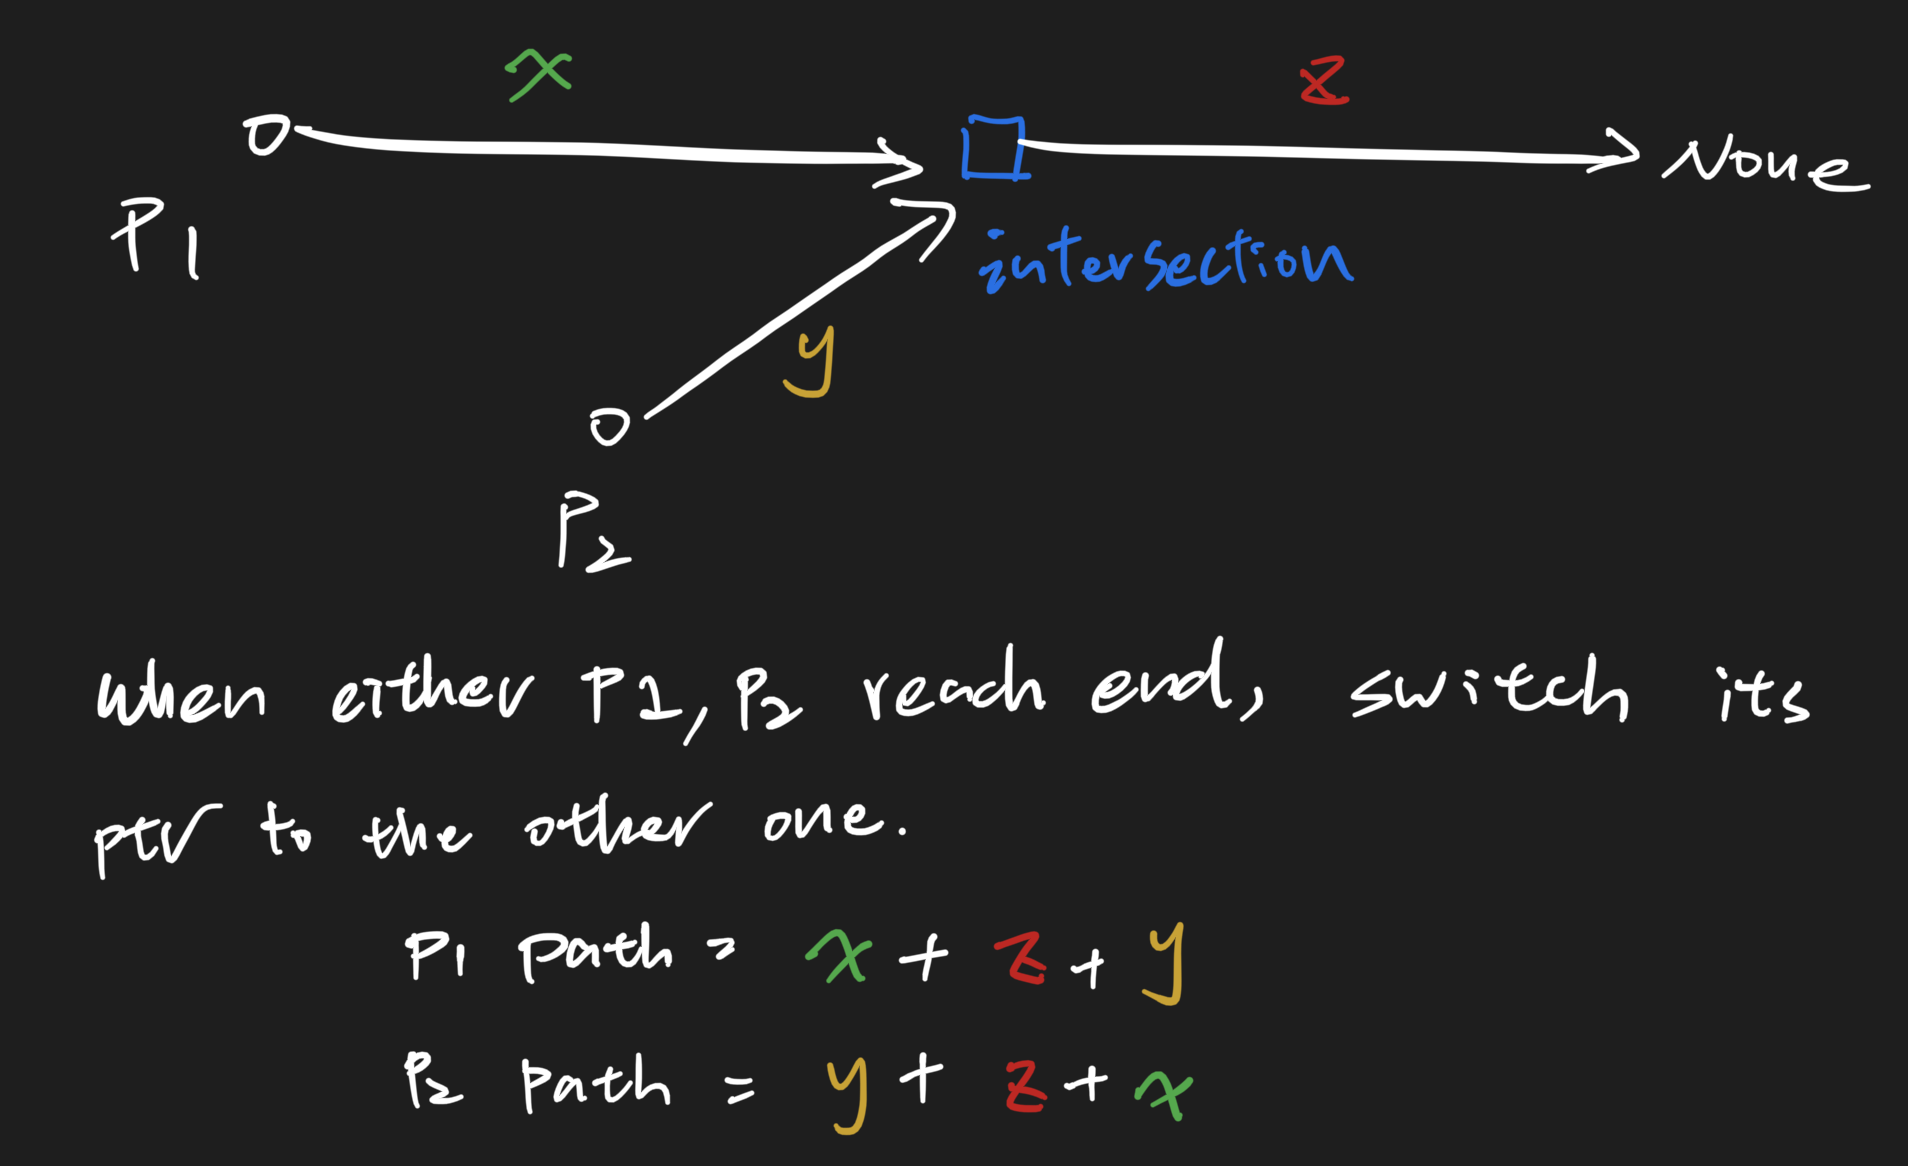 x
z
None
P1
intersection
y
P2
when either P1, P2 reach end, switch its
ptr to the other one.
P1 path = x + z + y
P2 path = y + z + x